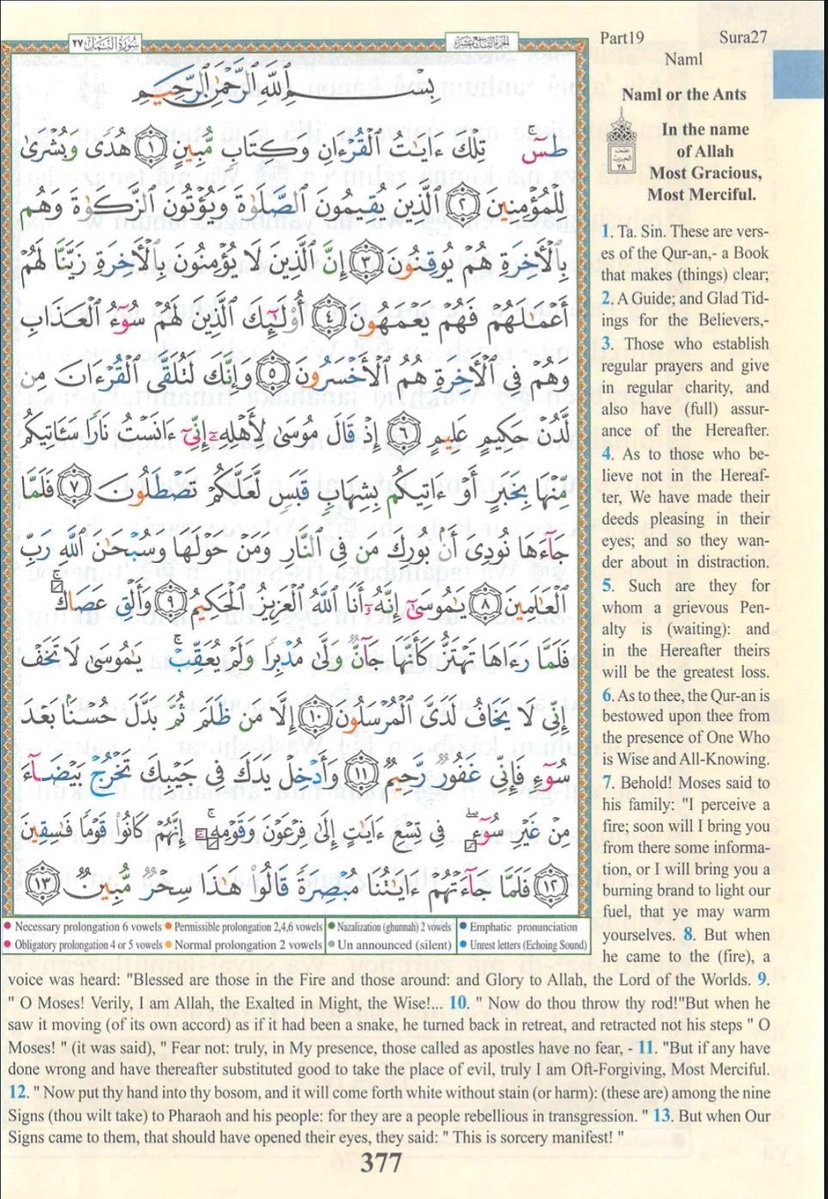 سُورَةُ النَّمْلِ ٢٧
الجُزْءُ التَّاسِعُ عَشَرَ
Part19 Sura27
Naml
بِسْمِ ٱللَّهِ ٱلرَّحْمَٰنِ ٱلرَّحِيمِ
طسٓ ۚ تِلْكَ ءَايَٰتُ ٱلْقُرْءَانِ وَكِتَابٍ مُّبِينٍ ١ هُدًى وَبُشْرَىٰ
لِلْمُؤْمِنِينَ ٢ ٱلَّذِينَ يُقِيمُونَ ٱلصَّلَوٰةَ وَيُؤْتُونَ ٱلزَّكَوٰةَ وَهُم
بِٱلْءَاخِرَةِ هُمْ يُوقِنُونَ ٣ إِنَّ ٱلَّذِينَ لَا يُؤْمِنُونَ بِٱلْءَاخِرَةِ زَيَّنَّا لَهُمْ
أَعْمَٰلَهُمْ فَهُمْ يَعْمَهُونَ ٤ أُو۟لَٰٓئِكَ ٱلَّذِينَ لَهُمْ سُوٓءُ ٱلْعَذَابِ
وَهُمْ فِى ٱلْءَاخِرَةِ هُمُ ٱلْأَخْسَرُونَ ٥ وَإِنَّكَ لَتُلَقَّى ٱلْقُرْءَانَ مِن
لَّدُنْ حَكِيمٍ عَلِيمٍ ٦ إِذْ قَالَ مُوسَىٰ لِأَهْلِهِۦٓ إِنِّىٓ ءَانَسْتُ نَارًا سَـَٔاتِيكُم
مِّنْهَا بِخَبَرٍ أَوْ ءَاتِيكُم بِشِهَابٍ قَبَسٍ لَّعَلَّكُمْ تَصْطَلُونَ ٧ فَلَمَّا
جَآءَهَا نُودِىَ أَنۢ بُورِكَ مَن فِى ٱلنَّارِ وَمَنْ حَوْلَهَا وَسُبْحَٰنَ ٱللَّهِ رَبِّ
ٱلْعَٰلَمِينَ ٨ يَٰمُوسَىٰٓ إِنَّهُۥٓ أَنَا ٱللَّهُ ٱلْعَزِيزُ ٱلْحَكِيمُ ٩ وَأَلْقِ عَصَاكَ ۚ
فَلَمَّا رَءَاهَا تَهْتَزُّ كَأَنَّهَا جَآنٌّ وَلَّىٰ مُدْبِرًا وَلَمْ يُعَقِّبْ ۚ يَٰمُوسَىٰ لَا تَخَفْ
إِنِّى لَا يَخَافُ لَدَىَّ ٱلْمُرْسَلُونَ ١٠ إِلَّا مَن ظَلَمَ ثُمَّ بَدَّلَ حُسْنًۢا بَعْدَ
سُوٓءٍ فَإِنِّى غَفُورٌ رَّحِيمٌ ١١ وَأَدْخِلْ يَدَكَ فِى جَيْبِكَ تَخْرُجْ بَيْضَآءَ
مِنْ غَيْرِ سُوٓءٍ ۖ فِى تِسْعِ ءَايَٰتٍ إِلَىٰ فِرْعَوْنَ وَقَوْمِهِۦٓ ۚ إِنَّهُمْ كَانُوا۟ قَوْمًا فَٰسِقِينَ
١٢ فَلَمَّا جَآءَتْهُمْ ءَايَٰتُنَا مُبْصِرَةً قَالُوا۟ هَٰذَا سِحْرٌ مُّبِينٌ ١٣
Necessary prolongation 6 vowels Permissible prolongation 2,4,6 vowels Nazalization (ghunnah) 2 vowels Emphatic pronunciation
Obligatory prolongation 4 or 5 vowels Normal prolongation 2 vowels Un announced (silent) Unrest letters (Echoing Sound)
Naml or the Ants
In the name
of Allah
Most Gracious,
Most Merciful.
1. Ta. Sin. These are vers-
es of the Qur-an,- a Book
that makes (things) clear;
2. A Guide; and Glad Tid-
ings for the Believers,-
3. Those who establish
regular prayers and give
in regular charity, and
also have (full) assur-
ance of the Hereafter.
4. As to those who be-
lieve not in the Hereaf-
ter, We have made their
deeds pleasing in their
eyes; and so they wan-
der about in distraction.
5. Such are they for
whom a grievous Pen-
alty is (waiting): and
in the Hereafter theirs
will be the greatest loss.
6. As to thee, the Qur-an is
bestowed upon thee from
the presence of One Who
is Wise and All-Knowing.
7. Behold! Moses said to
his family: "I perceive a
fire; soon will I bring you
from there some informa-
tion, or I will bring you a
burning brand to light our
fuel, that ye may warm
yourselves. 8. But when
he came to the (fire), a
voice was heard: "Blessed are those in the Fire and those around: and Glory to Allah, the Lord of the Worlds. 9.
" O Moses! Verily, I am Allah, the Exalted in Might, the Wise!... 10. " Now do thou throw thy rod!"But when he
saw it moving (of its own accord) as if it had been a snake, he turned back in retreat, and retracted not his steps " O
Moses! " (it was said), " Fear not: truly, in My presence, those called as apostles have no fear, - 11. "But if any have
done wrong and have thereafter substituted good to take the place of evil, truly I am Oft-Forgiving, Most Merciful.
12. " Now put thy hand into thy bosom, and it will come forth white without stain (or harm): (these are) among the nine
Signs (thou wilt take) to Pharaoh and his people: for they are a people rebellious in transgression. " 13. But when Our
Signs came to them, that should have opened their eyes, they said: " This is sorcery manifest! "
377